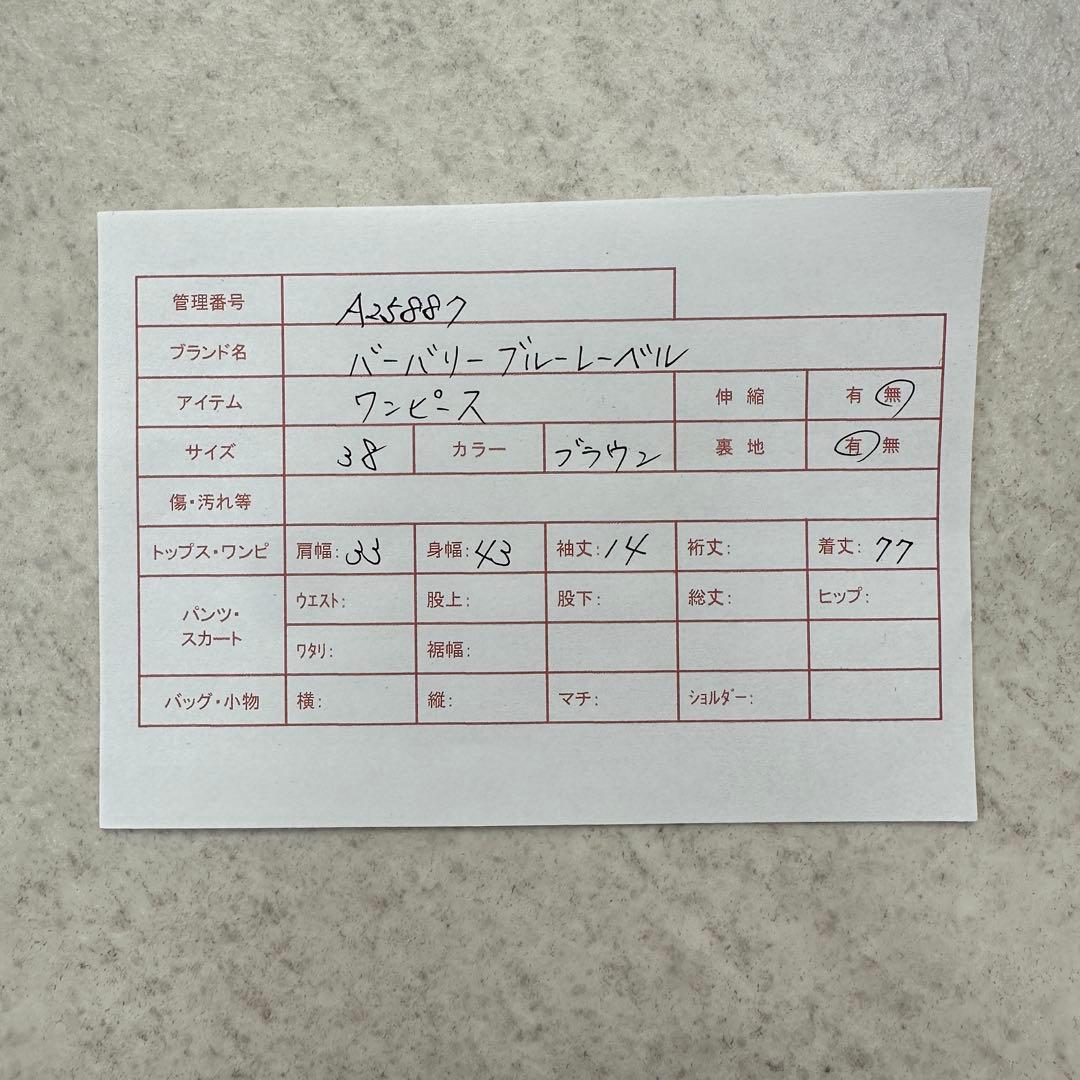 管理番号 A25887
ブランド名 バーバリーブルーレーベル
アイテム ワンピース 伸縮 有 無
サイズ 38 カラー ブラウン 裏地 有 無
傷・汚れ等
トップス・ワンピ 肩幅: 33 身幅: 43 袖丈: 14 裄丈: 着丈: 77
パンツ・スカート ウエスト: 股上: 股下: 総丈: ヒップ:
ワタリ: 裾幅:
バッグ・小物 横: 縦: マチ: ショルダー: